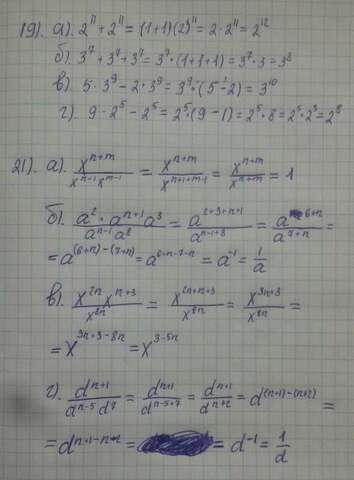 19). а). 2^11 + 2^11 = (1+1)(2)^11 = 2·2^11 = 2^12
б). 3^7 + 3^7 + 3^7 = 3^7·(1+1+1) = 3^7·3 = 3^8
в). 5·3^9 − 2·3^9 = 3^9·(5−2) = 3^10
г). 9·2^5 − 2^5 = 2^5·(9−1) = 2^5·8 = 2^5·2^3 = 2^8
21). а). x^(n+m) / (x^(n-1) x^(m-1)) = x^(n+m) / x^(n+1+m-1) = x^(n+m) / x^(n+m) = 1
б). (a^2 · a^(n+1) a^3) / (a^(n-1) a^8) = a^(2+3+n+1) / a^(n-1+8) = a^(6+n) / a^(7+n) =
= a^((6+n)-(7+n)) = a^(6+n-7-n) = a^(-1) = 1/a
в). (x^(2n) x^(n+3)) / x^(8n) = x^(2n+n+3) / x^(8n) = x^(3n+3) / x^(8n) =
= x^(3n+3-8n) = x^(3-5n)
г). d^(n+1) / (d^(n-5) d^7) = d^(n+1) / d^(n-5+7) = d^(n+1) / d^(n+2) = d^((n+1)-(n+2)) =
= d^(n+1-n-2) = = d^(-1) = 1/d